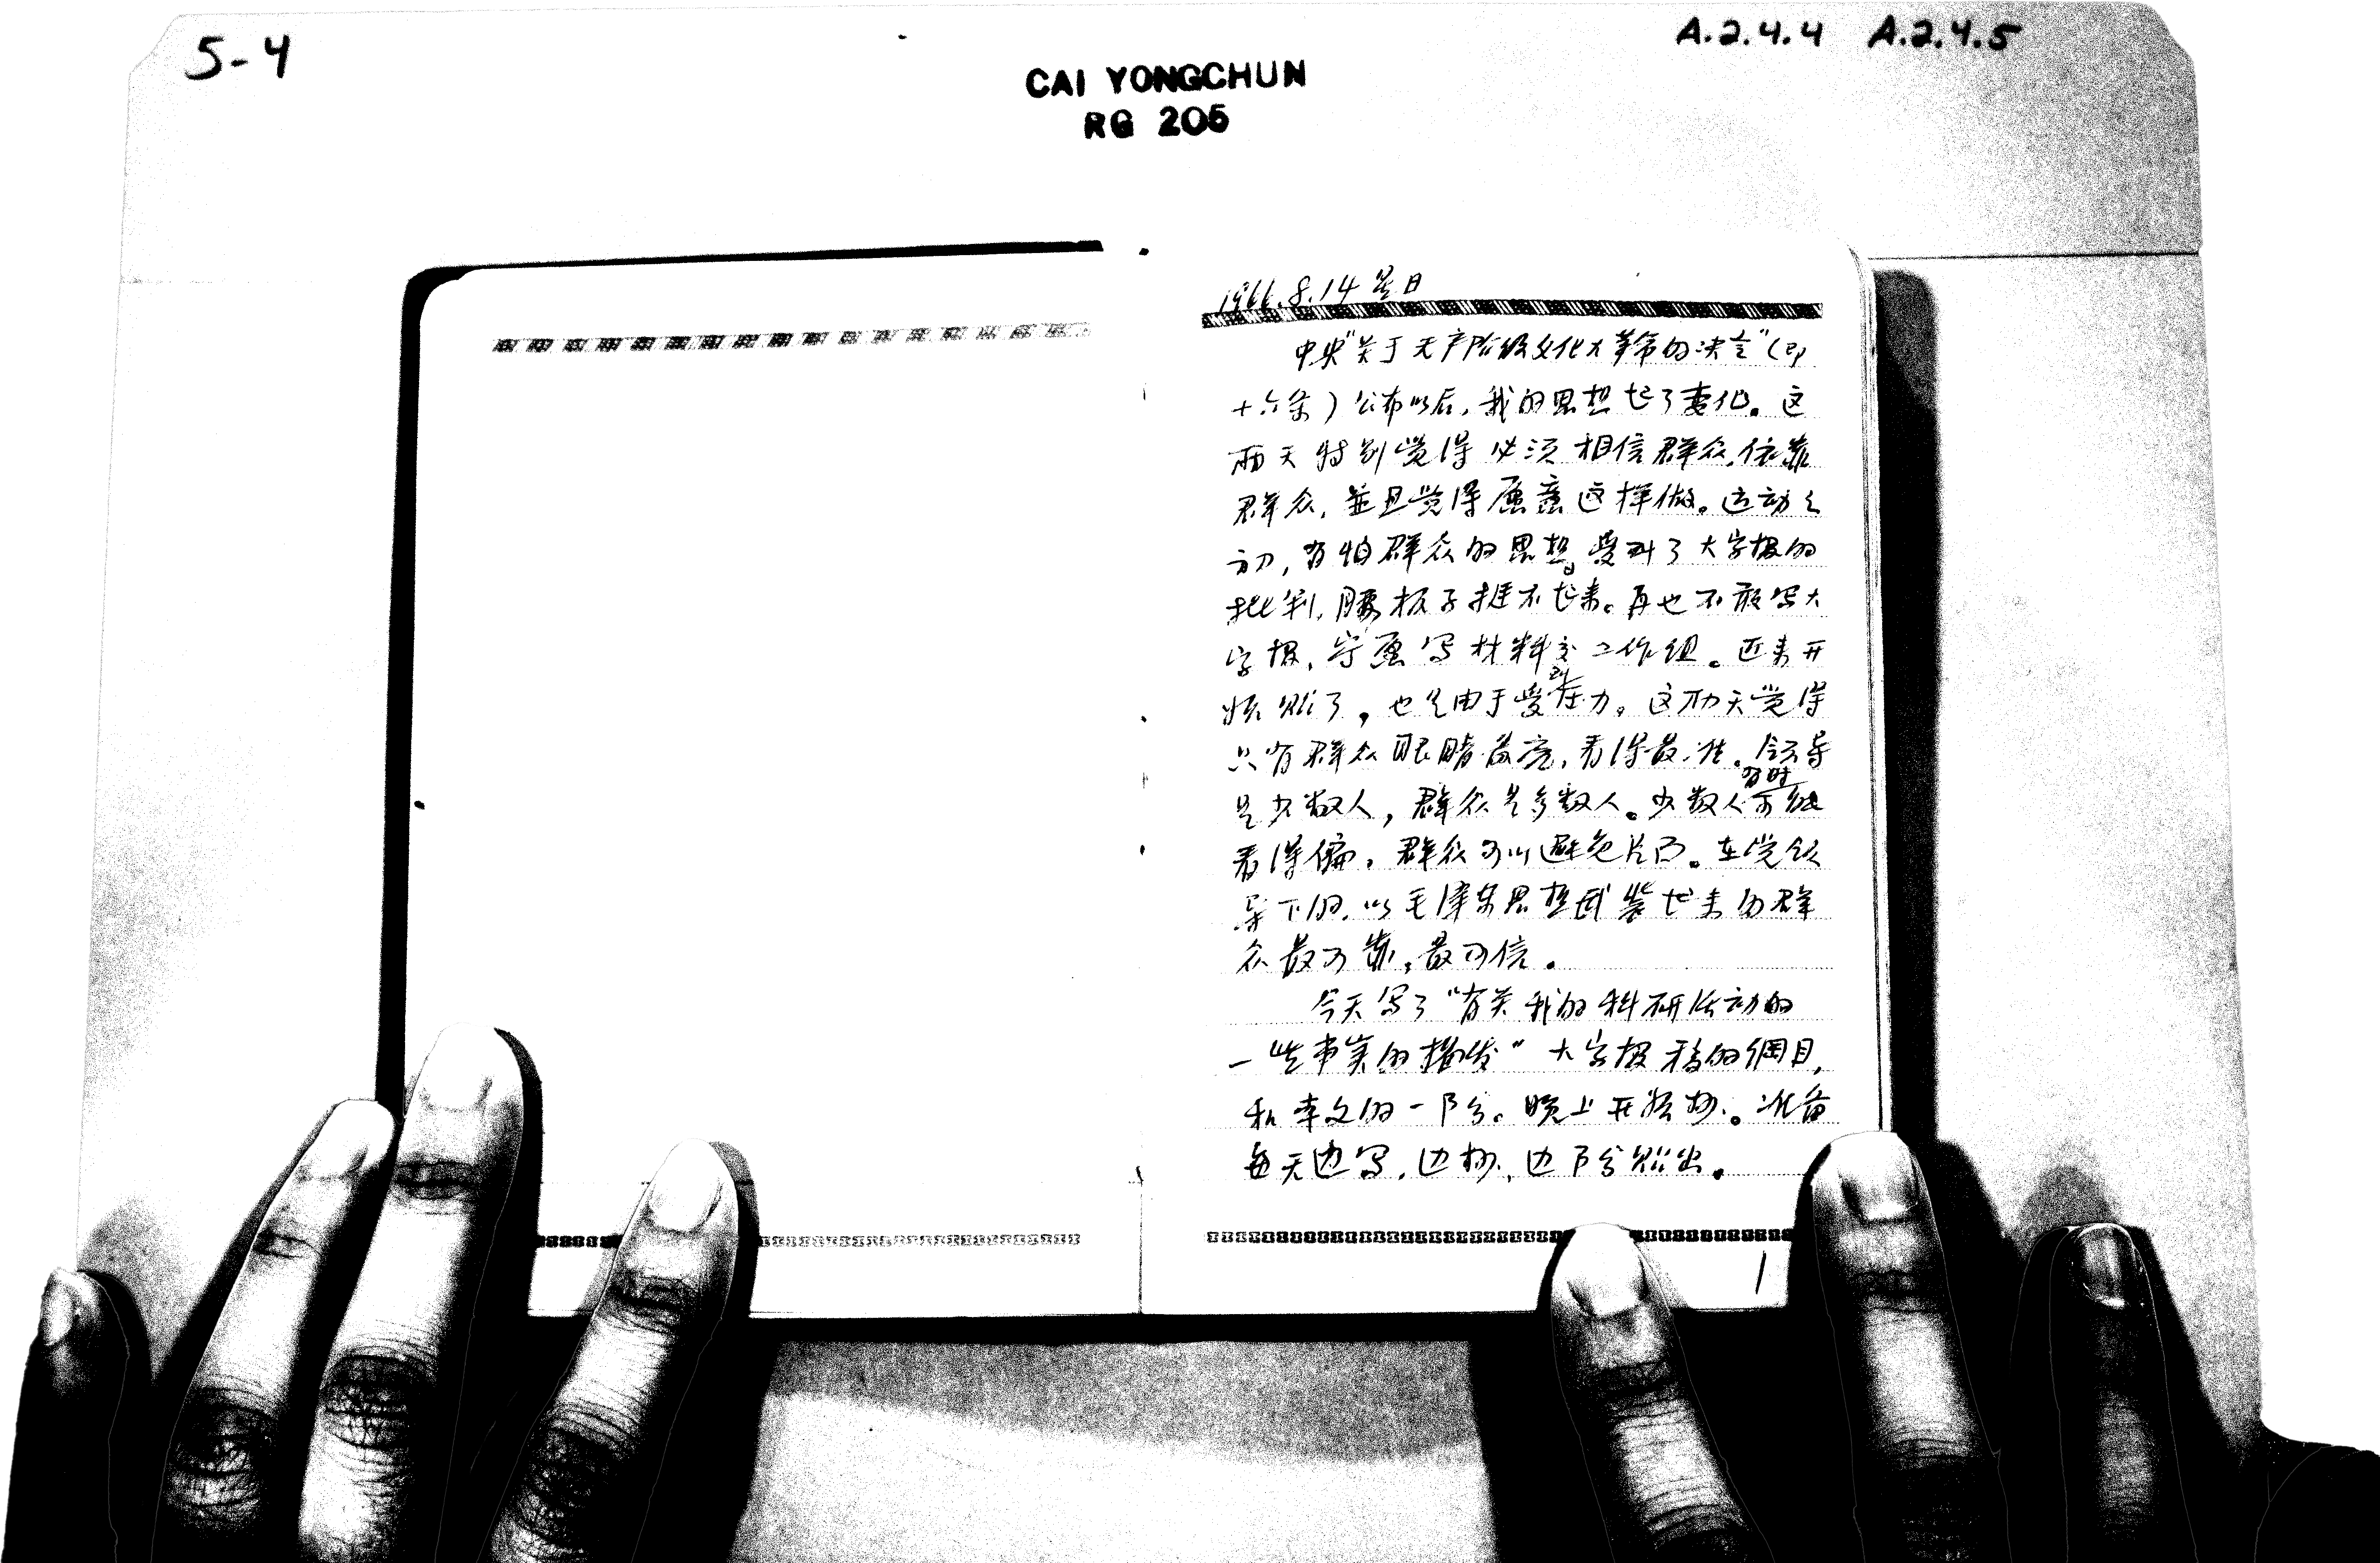 5-4
A.2.4.4 A.2.4.5
CAI YONGCHUN
RG 205
1966.8.14 星日
中央"关于无产阶级文化大革命的决定"(即
十六条)公布以后,我的思想起了变化。这
两天特别觉得必须相信群众,依靠
群众,並且觉得愿意这样做。运动之
初,有怕群众的思想。受到了大字报的
批判,腰板子挺不起来。再也不敢写大
字报,宁愿写材料交工作组。近来开
始贴了,也是由于受到压力。这两天觉得
只有群众眼睛最亮,看得最准。领导
是少数人,群众是多数人。少数人有时可能
看得偏,群众可以避免片面。在党领
导下的,以毛泽东思想武装起来的群
众最可靠,最可信。
今天写了"有关我的科研活动的
一些事实的揭发"大字报稿的纲目,
和本文的一部分。晚上开始抄。准备
每天边写,边抄,边部分贴出。
1